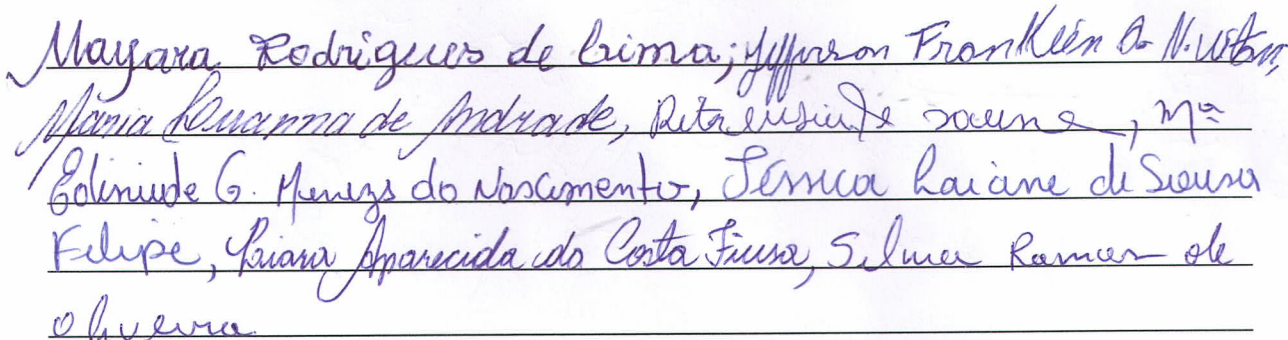 Mayara Rodrigues de Lima; Jefferson Franklin
Maria Luanna de Andrade, Rita de Sousa, Mª
Edineide G. Menezes do Nascimento, Jéssica Laiane de Sousa
Felipe, Aparecida da Costa, Silma Ramos de
Oliveira